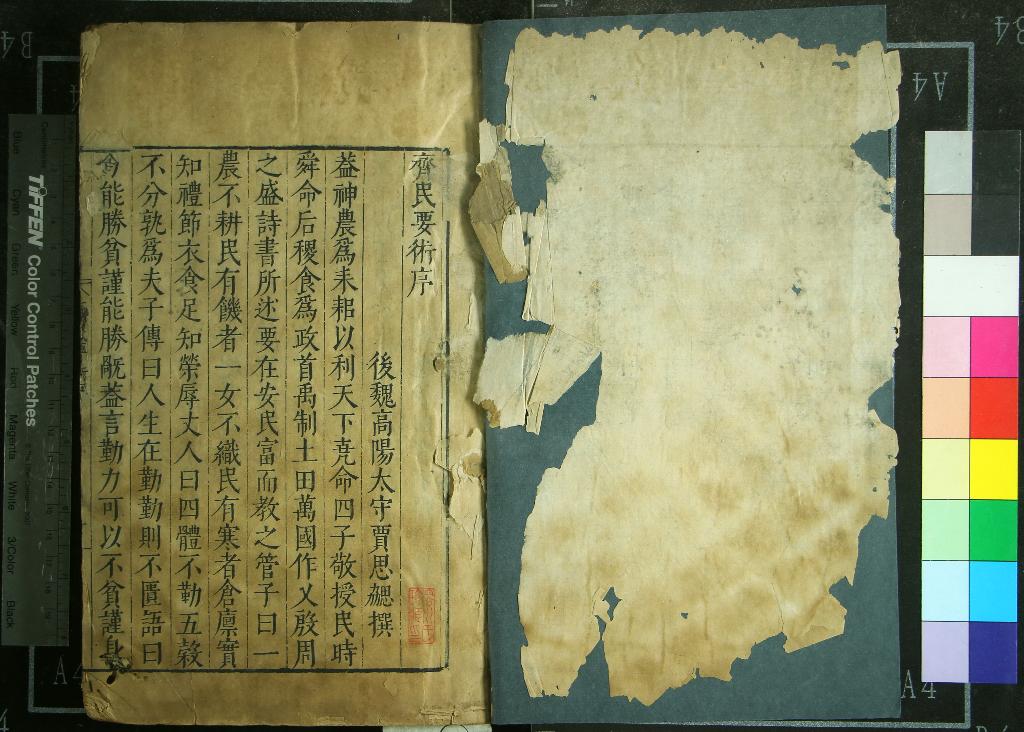 齊民要術序
後魏高陽太守賈思勰撰
葢神農爲耒耜以利天下堯命四子敬授民時
舜命后稷食爲政首禹制土田萬國作乂殷周
之盛詩書所述要在安民富而教之管子曰一
農不耕民有饑者一女不織民有寒者倉廪實
知禮節衣食足知榮辱丈人曰四體不勤五糓
不分孰爲夫子傳曰人生在勤勤則不匱語曰
能勝貧謹能勝戝葢言勤力可以不貧謹身
TIFFEN Color Control Patches
Blue Cyan Green Yellow Red Magenta White 3/Color Black
A4
A4
A4
B4
B4